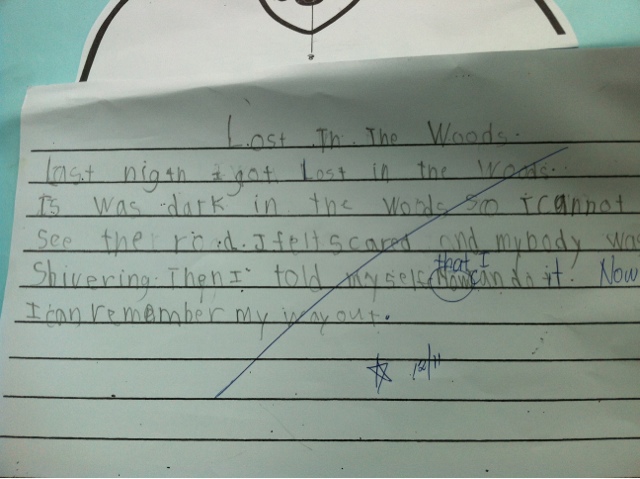 Lost In The Woods.
Last nigth I got Lost in the Woods.
Is was dark in the Woods so I cannot
See the road. I felt scared and my body was
that I
Shivering. Then I told myself Now can do it. Now
I can remember my way out.